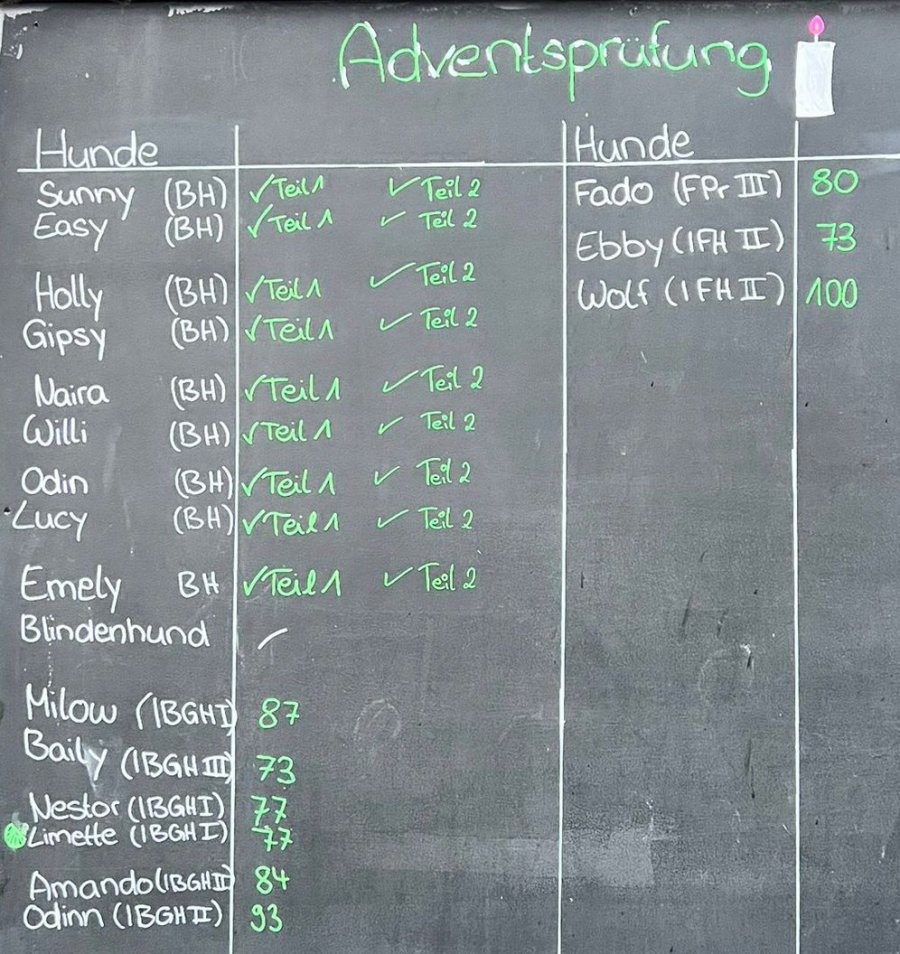 Adventsprüfung
Hunde
Sunny (BH) ✓Teil 1 ✓ Teil 2
Easy (BH) ✓Teil 1 ✓ Teil 2
Holly (BH) ✓Teil 1 ✓ Teil 2
Gipsy (BH) ✓Teil 1 ✓ Teil 2
Naira (BH) ✓Teil 1 ✓ Teil 2
Willi (BH) ✓Teil 1 ✓ Teil 2
Odin (BH) ✓Teil 1 ✓ Teil 2
Lucy (BH) ✓Teil 1 ✓ Teil 2
Emely BH ✓Teil 1 ✓ Teil 2
Blindenhund
Milow (IBGHI) 87
Baily (IBGH III) 73
Nestor (IBGHI) 77
Limette (IBGHI) 77
Amando (IBGHII) 84
Odinn (IBGH II) 93
Hunde
Fado (FPr III) 80
Ebby (IFH II) 73
Wolf (IFH II) 100